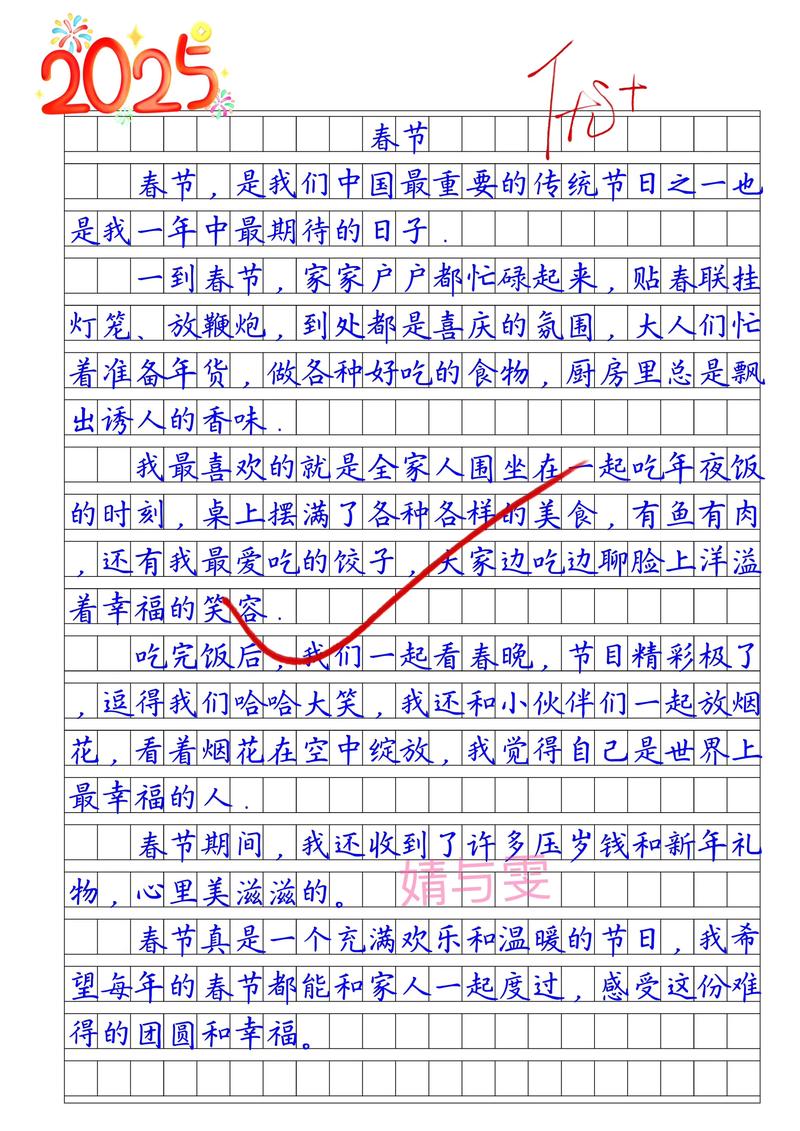 2025
优+
春节
春节，是我们中国最重要的传统节日之一也
是我一年中最期待的日子.
一到春节，家家户户都忙碌起来，贴春联挂
灯笼、放鞭炮，到处都是喜庆的氛围，大人们忙
着准备年货，做各种好吃的食物，厨房里总是飘
出诱人的香味.
我最喜欢的就是全家人围坐在一起吃年夜饭
的时刻，桌上摆满了各种各样的美食，有鱼有肉
，还有我最爱吃的饺子，大家边吃边聊脸上洋溢
着幸福的笑容.
吃完饭后，我们一起看春晚，节目精彩极了
，逗得我们哈哈大笑，我还和小伙伴们一起放烟
花，看着烟花在空中绽放，我觉得自己是世界上
最幸福的人.
春节期间，我还收到了许多压岁钱和新年礼
物，心里美滋滋的。
婧与雯
春节真是一个充满欢乐和温暖的节日，我希
望每年的春节都能和家人一起度过，感受这份难
得的团圆和幸福。